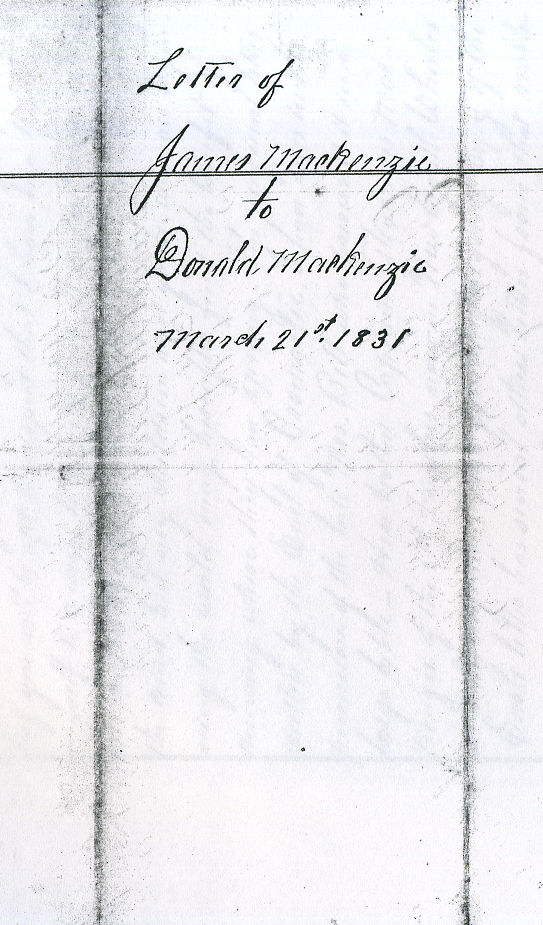 Letter of
James Mackenzie
to
Donald Mackenzie
March 21st. 1831